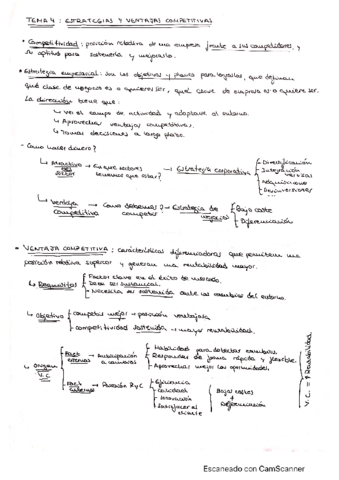 TEMA 4 : ESTRATEGIAS Y VENTAJAS COMPETITIVAS
• Competitividad: posición relativa de una empresa frente a sus competidores, y
su aptitud para sostenerla y mejorarla.
• Estrategia empresarial: son los objetivos y planes para lograrlos, que definan
qué clase de negocio es o quiere ser, qué clase de empresa es o quiere ser.
La dirección tiene que:
↳ ver el campo de actividad y adaptarse al entorno.
↳ Aprovechar ventajas competitivas.
↳ Tomar decisiones a largo plazo.
- Como hacer dinero?
↳ Atractivo del sector → En que sectores tenemos que estar? → Estrategia corporativa
↳ Diversificación
↳ Integración vertical
↳ Adquisiciones
↳ Desinversiones
↳ Ventaja competitiva → Como debemos competir? → Estrategia de negocio
↳ Bajo coste
↳ Diferenciación
• VENTAJA COMPETITIVA : características diferenciadoras que permiten una
posición relativa superior y generan una rentabilidad mayor.
↳ Requisitos
Factor clave en el éxito de mercado.
Debe ser sustancial.
Necesita ser sostenida ante los cambios del entorno.
↳ Objetivo
competir mejor → posición ventajosa
competitividad sostenida → mayor rentabilidad.
↳ Origen V.C.
Fact. externos → Anticipación a cambios
Habilidad para detectar cambios
Responder de forma rápida y flexible.
Aprovechar mejor las oportunidades.
Fact. internos → Posesión R y C
Eficiencia
Calidad
Innovación
Satisfacer al cliente
Bajos costes
+
Diferenciación
V.C. = ↑ Rentabilidad
Escaneado con CamScanner